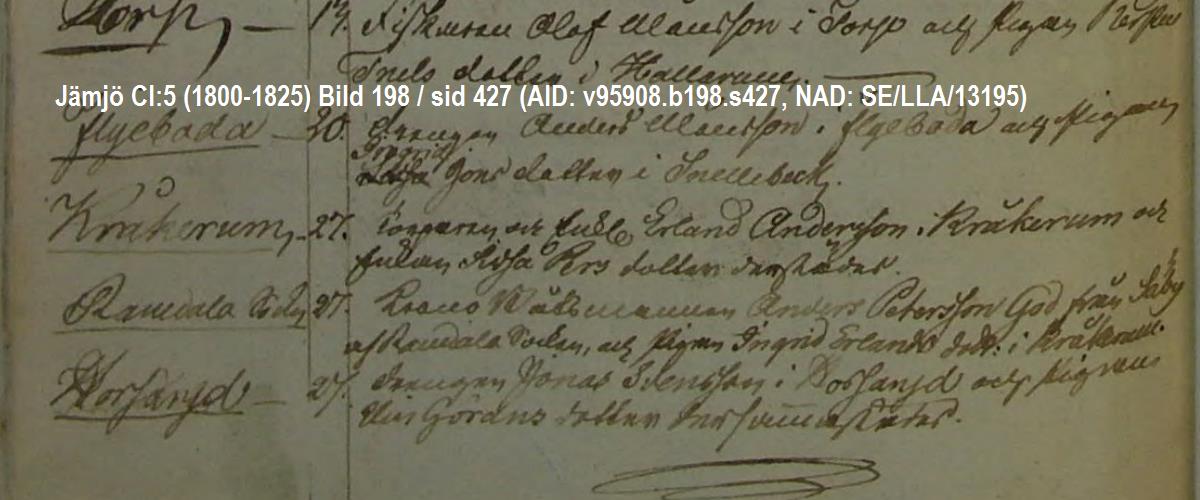 Torp, — 13. Fiskaren Olof Månsson i Torp och Pigan Kerstin
Truls dotter i Hallarum.
Jämjö CI:5 (1800-1825) Bild 198 / sid 427 (AID: v95908.b198.s427, NAD: SE/LLA/13195)
flyebåda — 20. Drengen Anders Månsson i flyebåda och Pigan
Ingrid
Jons dotter i Snellebeck.
Kråkerum, - 27. Torparen och Enkl Erland Andersson i Kråkerum och
Enkan Sissa Pers dotter derstädes.
Ramdala Sokn 27. Krono Båtsmannen Anders Petersson God från Säby
af Ramdala Socken, och Pigan Ingrid Erlands dott: i Kråkerum.
Torsanjd — 27. Drengen Jonas Svensson i Torsanjd och Pigan
Görans dotter dersammastädes.